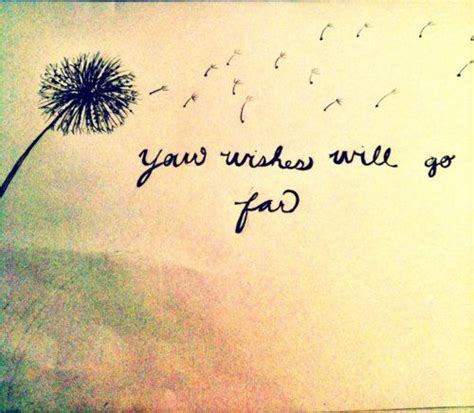 your wishes will go
far